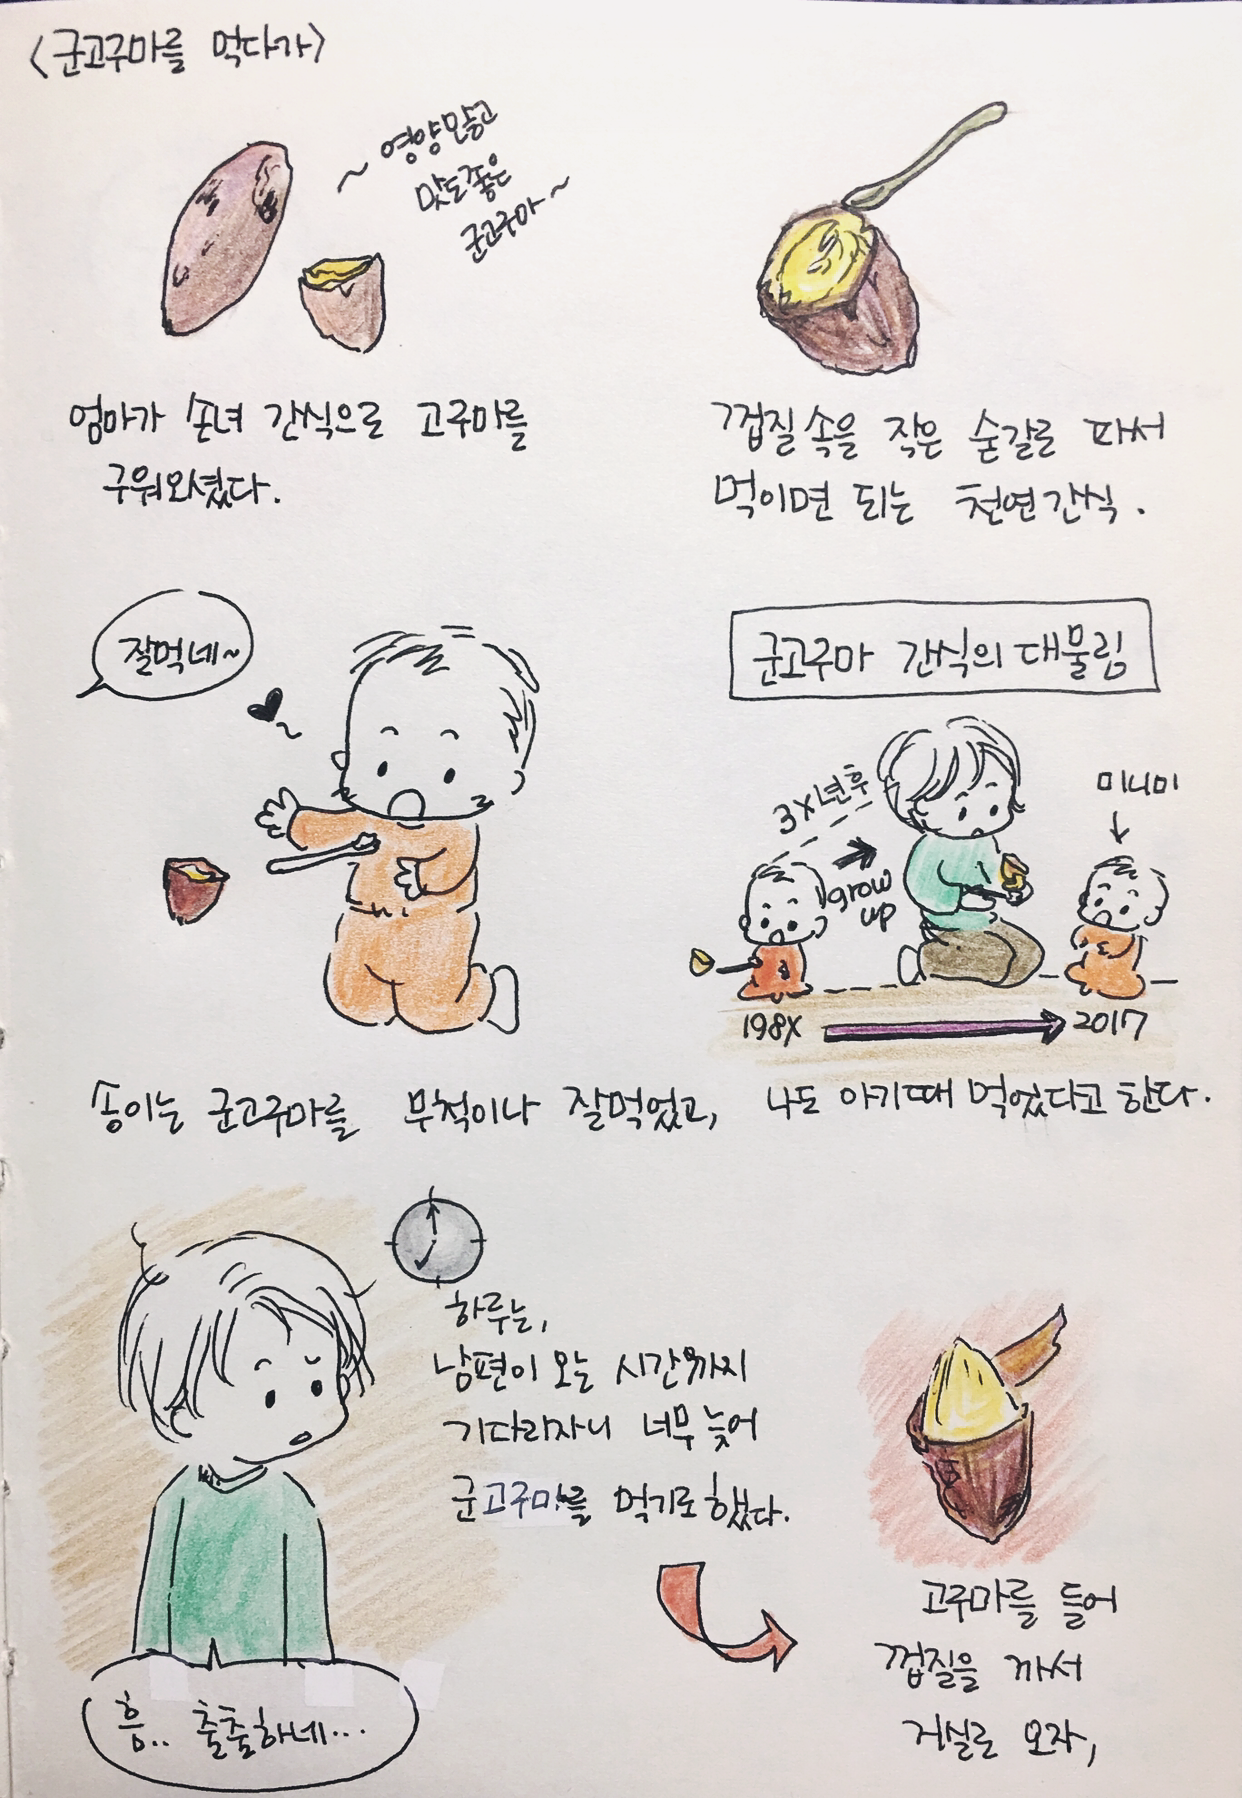 <군고구마를 먹다가>
~ 영양많고
맛도좋은
군고구마~
엄마가 손녀 간식으로 고구마를
구워오셨다.
껍질 속을 작은 숟갈로 파서
먹이면 되는 천연간식.
잘먹네~
군고구마 간식의 대물림
3X년후
grow
up
미니미
198X
2017
송이는 군고구마를 무척이나 잘먹었고, 나도 아기때 먹었다고 한다.
하루는,
남편이 오는 시간까지
기다리자니 너무 늦어
군고구마를 먹기로했다.
흠.. 출출하네...
고구마를 들어
껍질을 까서
거실로 오자,